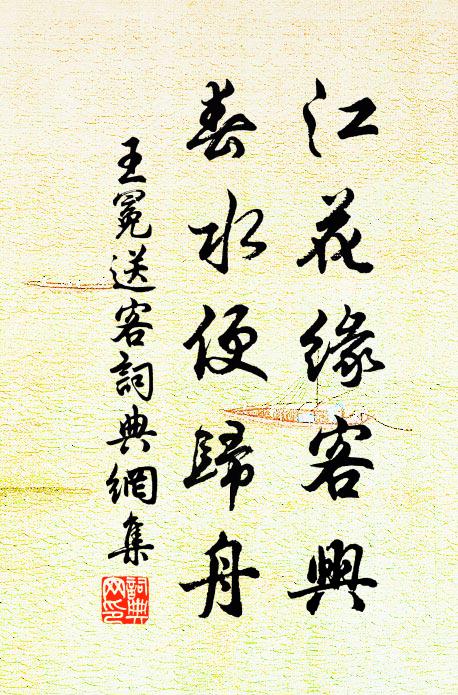 江花緣客興
春水便歸舟
王冕送客詞典網集
詞典
网印